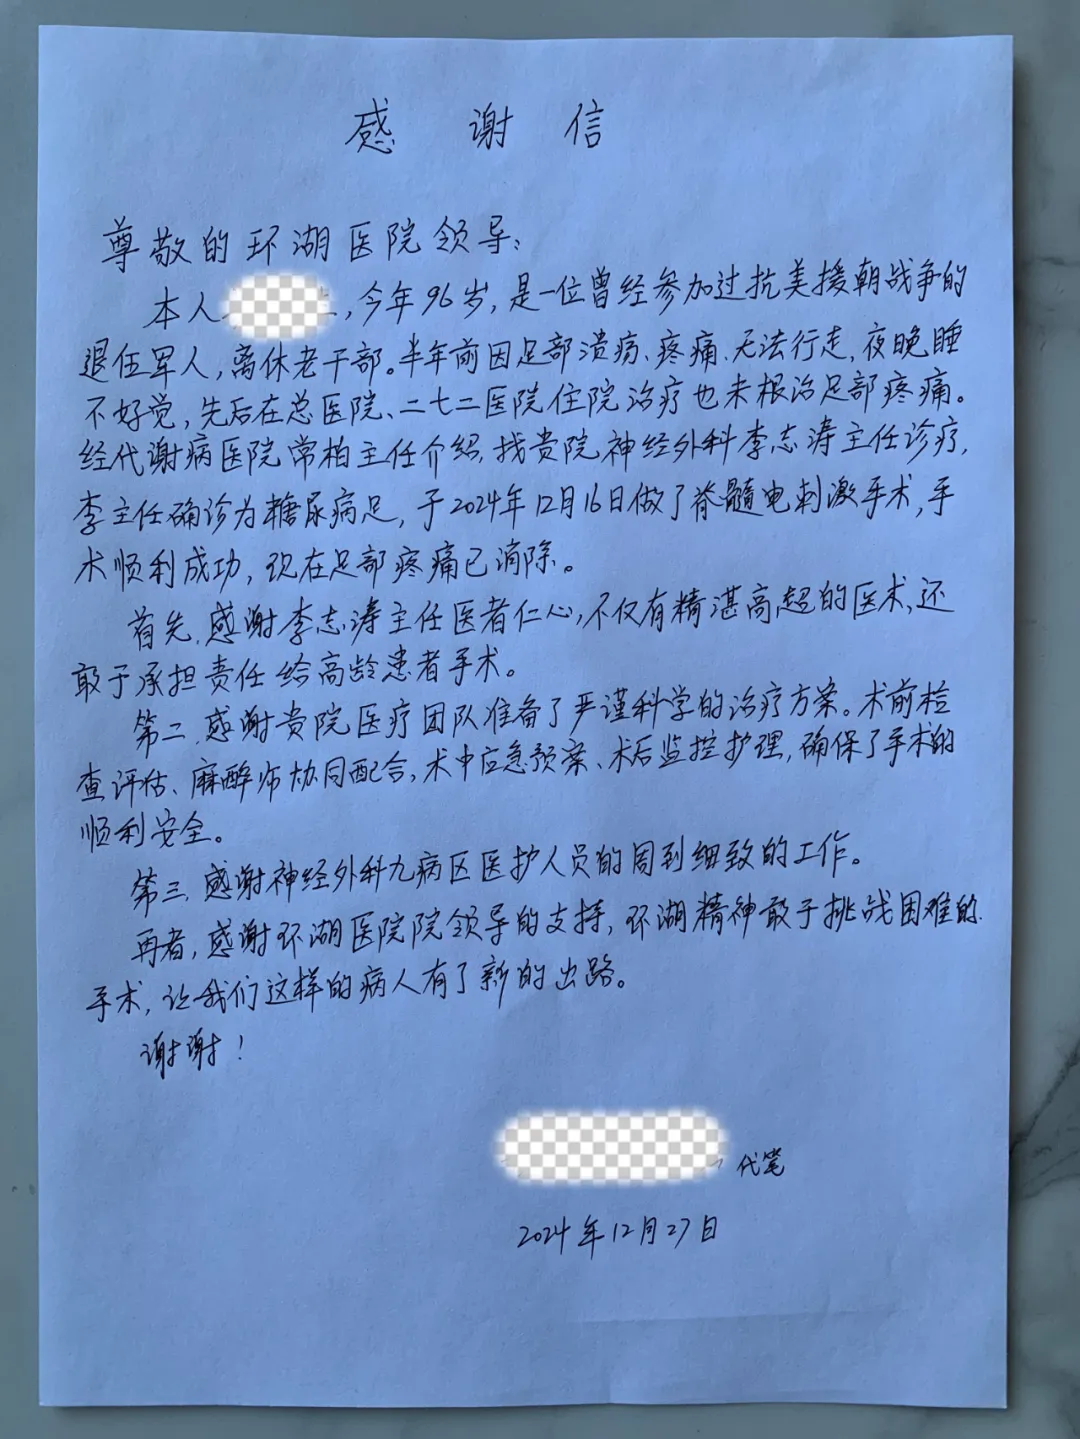 感谢信
尊敬的环湖医院领导：
本人，今年96岁，是一位曾经参加过抗美援朝战争的
退伍军人，离休老干部。半年前因足部溃疡、疼痛、无法行走，夜晚睡
不好觉，先后在总医院、二七二医院住院治疗也未根治足部疼痛。
经代谢病医院常柏主任介绍，找贵院神经外科李志涛主任诊疗，
李主任确诊为糖尿病足，于2024年12月16日做了脊髓电刺激手术，手
术顺利成功，现在足部疼痛已消除。
首先，感谢李志涛主任医者仁心，不仅有精湛高超的医术，还
敢于承担责任给高龄患者手术。
第二，感谢贵院医疗团队准备了严谨科学的治疗方案。术前检
查评估、麻醉师协同配合，术中应急预案、术后监控护理，确保了手术的
顺利安全。
第三，感谢神经外科九病区医护人员的周到细致的工作。
再者，感谢环湖医院院领导的支持，环湖精神敢于挑战困难的
手术，让我们这样的病人有了新的出路。
谢谢！
代笔
2024年12月27日